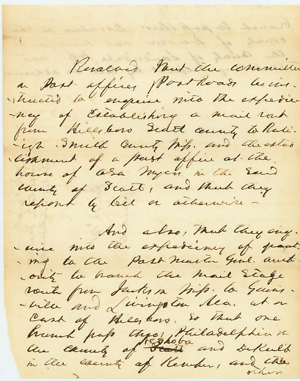 Resolved That the committee
on Post offices & Post Roads be ins-
tructed to enquire into the expedien-
cy of Establishing a mail rout
from Hillsboro Scott county to Ral-
igh Smith County Miss, and the estab-
lishment of a post office at the
house of Asa Myers in the said
county of Scott, and that they
report by bill or otherwise —
And also, that they enq-
uire into the expediency of grant-
ing to the Post Master Genl. auth-
ority to branch the mail Stage
rout from Jackson Miss. to Gains-
ville and Livingston Ala. at or
East of Hillsboro. So that one
branch pass thro' Philadelphia in
the county of Neshoba and DeKalb
in the county of Kemper, and the
other